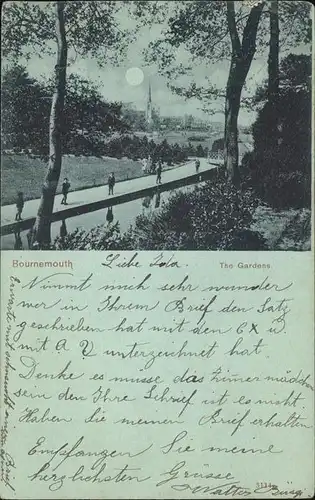 Bournemouth
The Gardens
Liebe Ida.
Nimmt mich sehr wunder
wer in Ihrem Brief den Satz
geschrieben hat mit den 6X u
mit A V unterzeichnet hat.
Denke es musse das Zimermädchen
sein den Ihre Schrief ist es nicht
Haben Sie meinen Brief erhalten
Empfangen Sie meine
herzlichsten Grüsse
3134
Walter